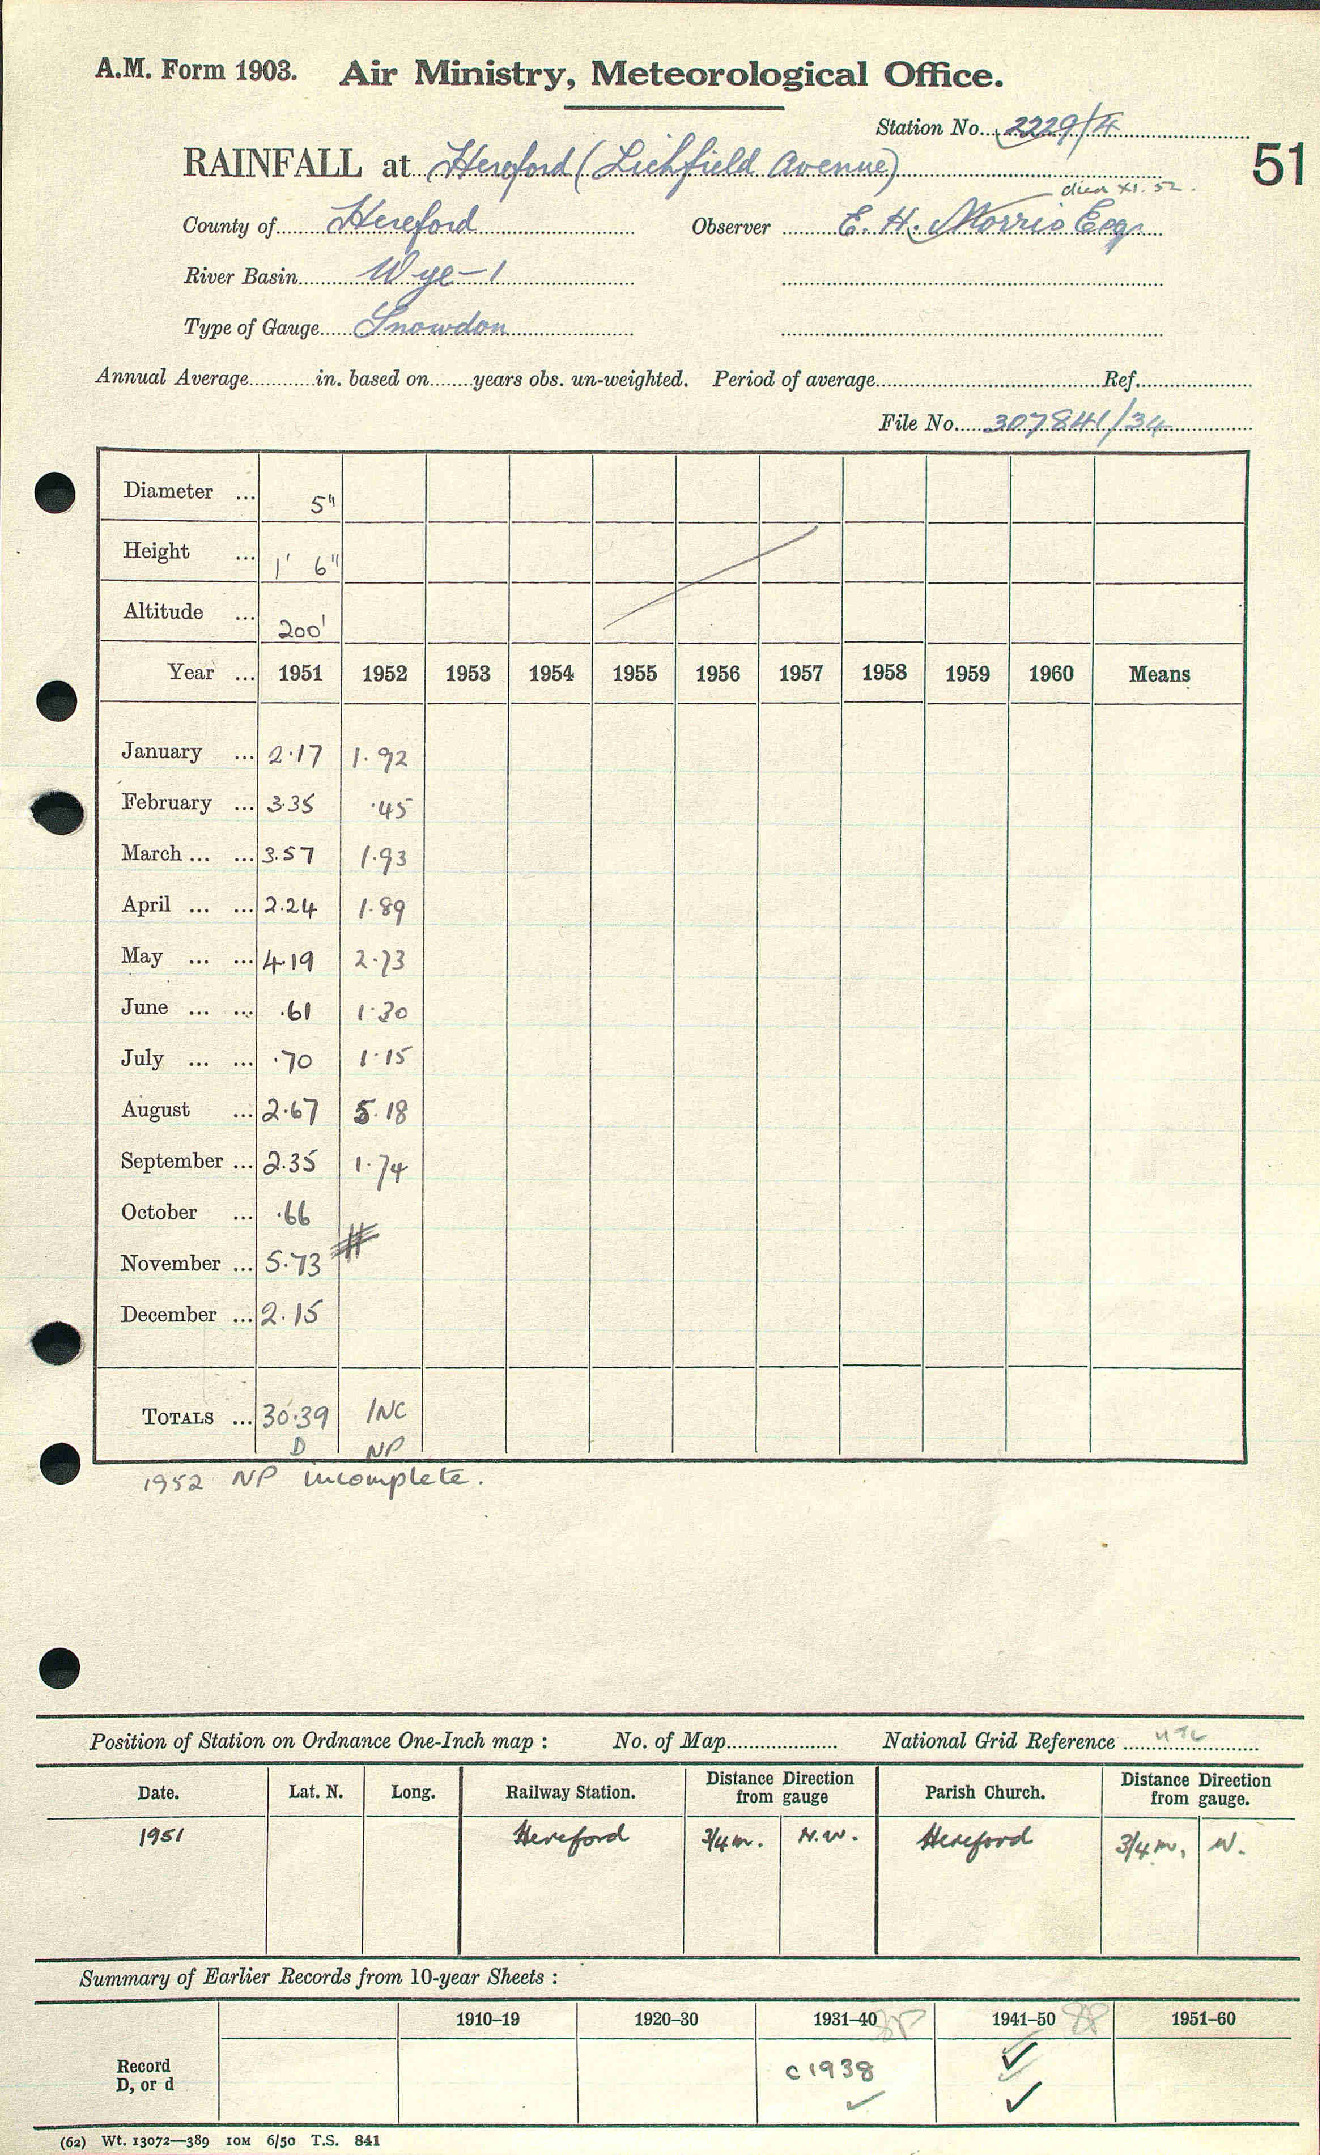 A.M. Form 1903. Air Ministry, Meteorological Office.
Station No. 2229/4
51
RAINFALL at Hereford (Lichfield Avenue)
died XI. 52.
County of Hereford Observer E. H. Morris Esq.
River Basin Wye-1
Type of Gauge Snowdon
Annual Average in. based on years obs. un-weighted. Period of average Ref.
File No. 307841/34
Diameter ... 5"
Height ... 1' 6"
Altitude ... 200'
Year ... 1951 1952 1953 1954 1955 1956 1957 1958 1959 1960 Means
January ... 2.17 1.92
February ... 3.35 .45
March ... ... 3.57 1.93
April ... ... 2.24 1.89
May ... ... 4.19 2.73
June ... ... .61 1.30
July ... ... .70 1.15
August ... 2.67 5.18
September ... 2.35 1.74
October ... .66
November ... 5.73
December ... 2.15
TOTALS ... 30.39 INC
D NP
1952 NP incomplete.
Position of Station on Ordnance One-Inch map : No. of Map National Grid Reference
Date. Lat. N. Long. Railway Station. Distance Direction from gauge Parish Church. Distance Direction from gauge.
1951 Hereford 3/4 m. N.W. Hereford 3/4 m. W.
Summary of Earlier Records from 10-year Sheets :
1910–19 1920–30 1931–40 1941–50 1951–60
Record
D, or d
C 1938 ✓ ✓ ✓
(62) Wt. 13072—389 10M 6/50 T.S. 841